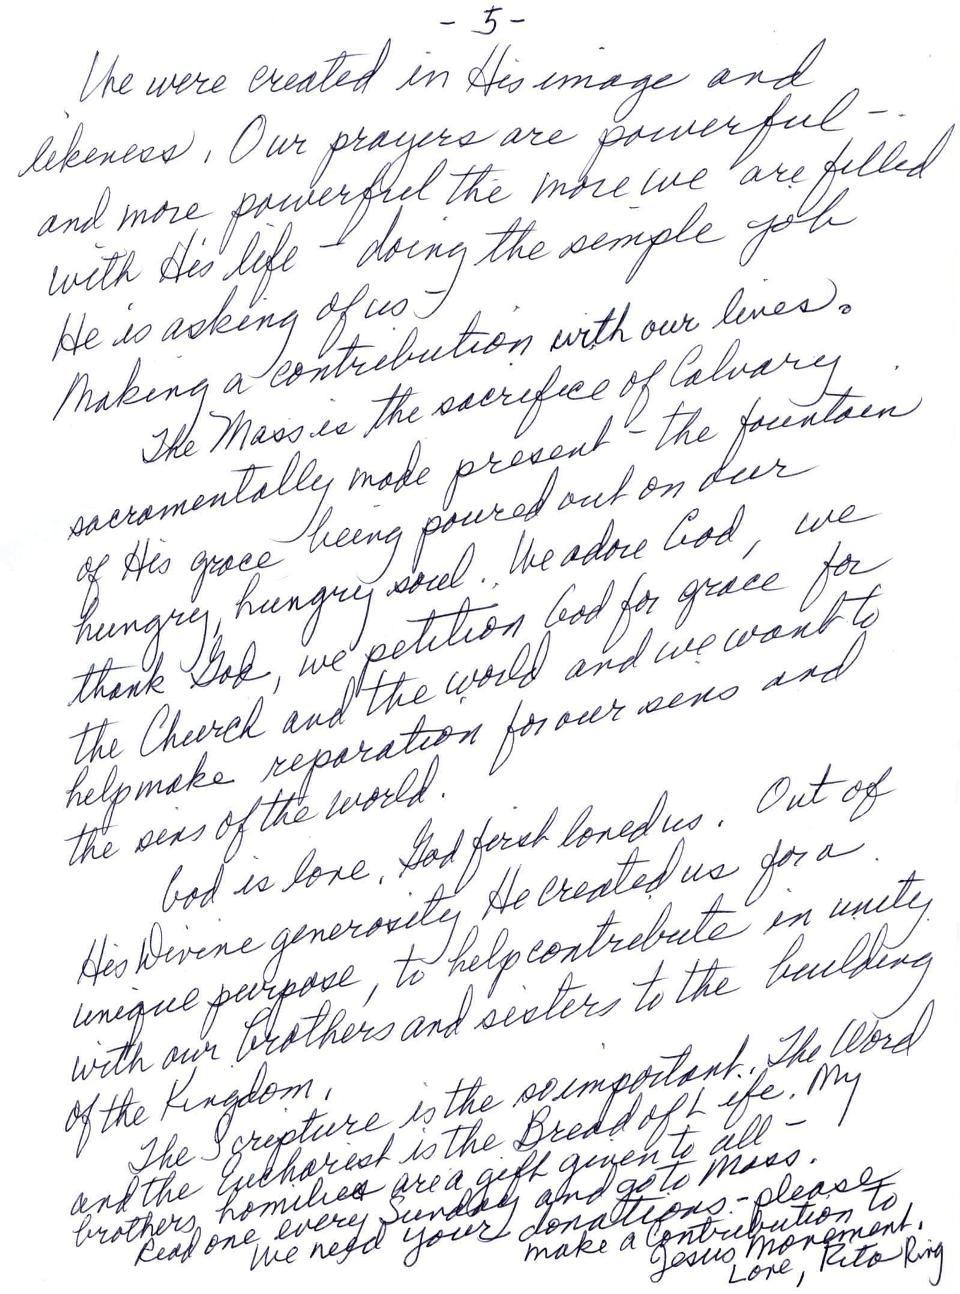 - 5 -
We were created in His image and
likeness. Our prayers are powerful -
and more powerful the more we are filled
with His life - doing the simple job
He is asking of us -
Making a contribution with our lives.
The Mass is the sacrifice of Calvary
sacramentally made present - the fountain
of His grace being poured out on our
hungry, hungry soul. We adore God, we
thank God, we petition God for grace for
the Church and the world and we want to
help make reparation for our sins and
the sins of the world.
God is love. God first loved us. Out of
His Divine generosity He created us for a
unique purpose, to help contribute in unity
with our brothers and sisters to the building
of the Kingdom.
The Scripture is the so important. The Word
and the Eucharist is the Bread of Life. My
brothers homilies are a gift given to all -
Read one every Sunday and go to Mass.
We need your donations - please
make a contribution to
Jesus Movement.
Love, Rita Ring